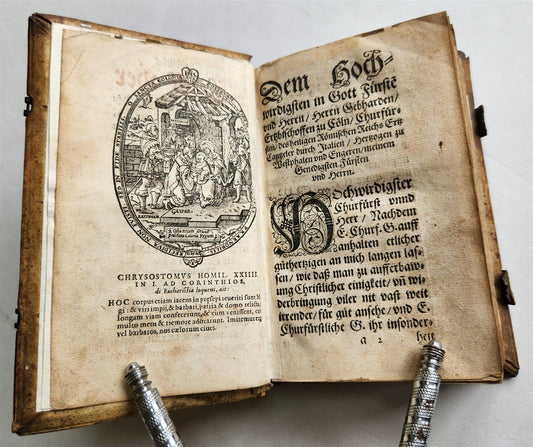 GASPAR.
BALTHASAR
CHRYSOSTOMVS HOMIL. XXIIII
IN I. AD CORINTHIOS,
de Eucharistia loquens, ait:
HOC corpus etiam iacens in præsepi reueriti sunt
gi: & viri impij, & barbari, patria & domo relicti
longam viam confecerunt, & cum venissent, cu
multo metu & tremore adorarunt. Imitemur eg
vel barbaros, nos cælorum ciues.
Dem Hoch-
wirdigsten in Gott Fürstē
vnd Herrn / Herrn Gebharden /
Ertzbischoffen zu Cöln / Churfür-
sten / des heiligen Römischen Reichs Ertz
Cantzeler durch Italien / Hertzogen zu
Westphalen vnd Engeren / meinem
Genedigsten Fürsten
vnd Herrn.
Hochwirdigster
Churfürst vnnd
Herr / Nachdem
E. Churf. G. auff
anhalten etlicher
güthertzigen an mich langen las-
sen / wie daß man zu aufferbaw-
ung Christlicher einigkeit / vñ wi-
derbringung viler nit vast weit
irrender / für güt ansehe / vnd E.
Churfürstliche G. ihr insonder-
a 2 heit